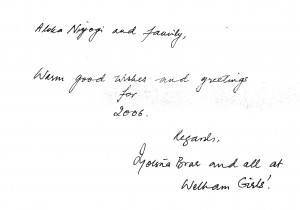 Aloka Niyogi and family,
Warm good wishes and greetings
for
2006.
Regards.
Jyotsna Brar and all at
Welham Girls'.